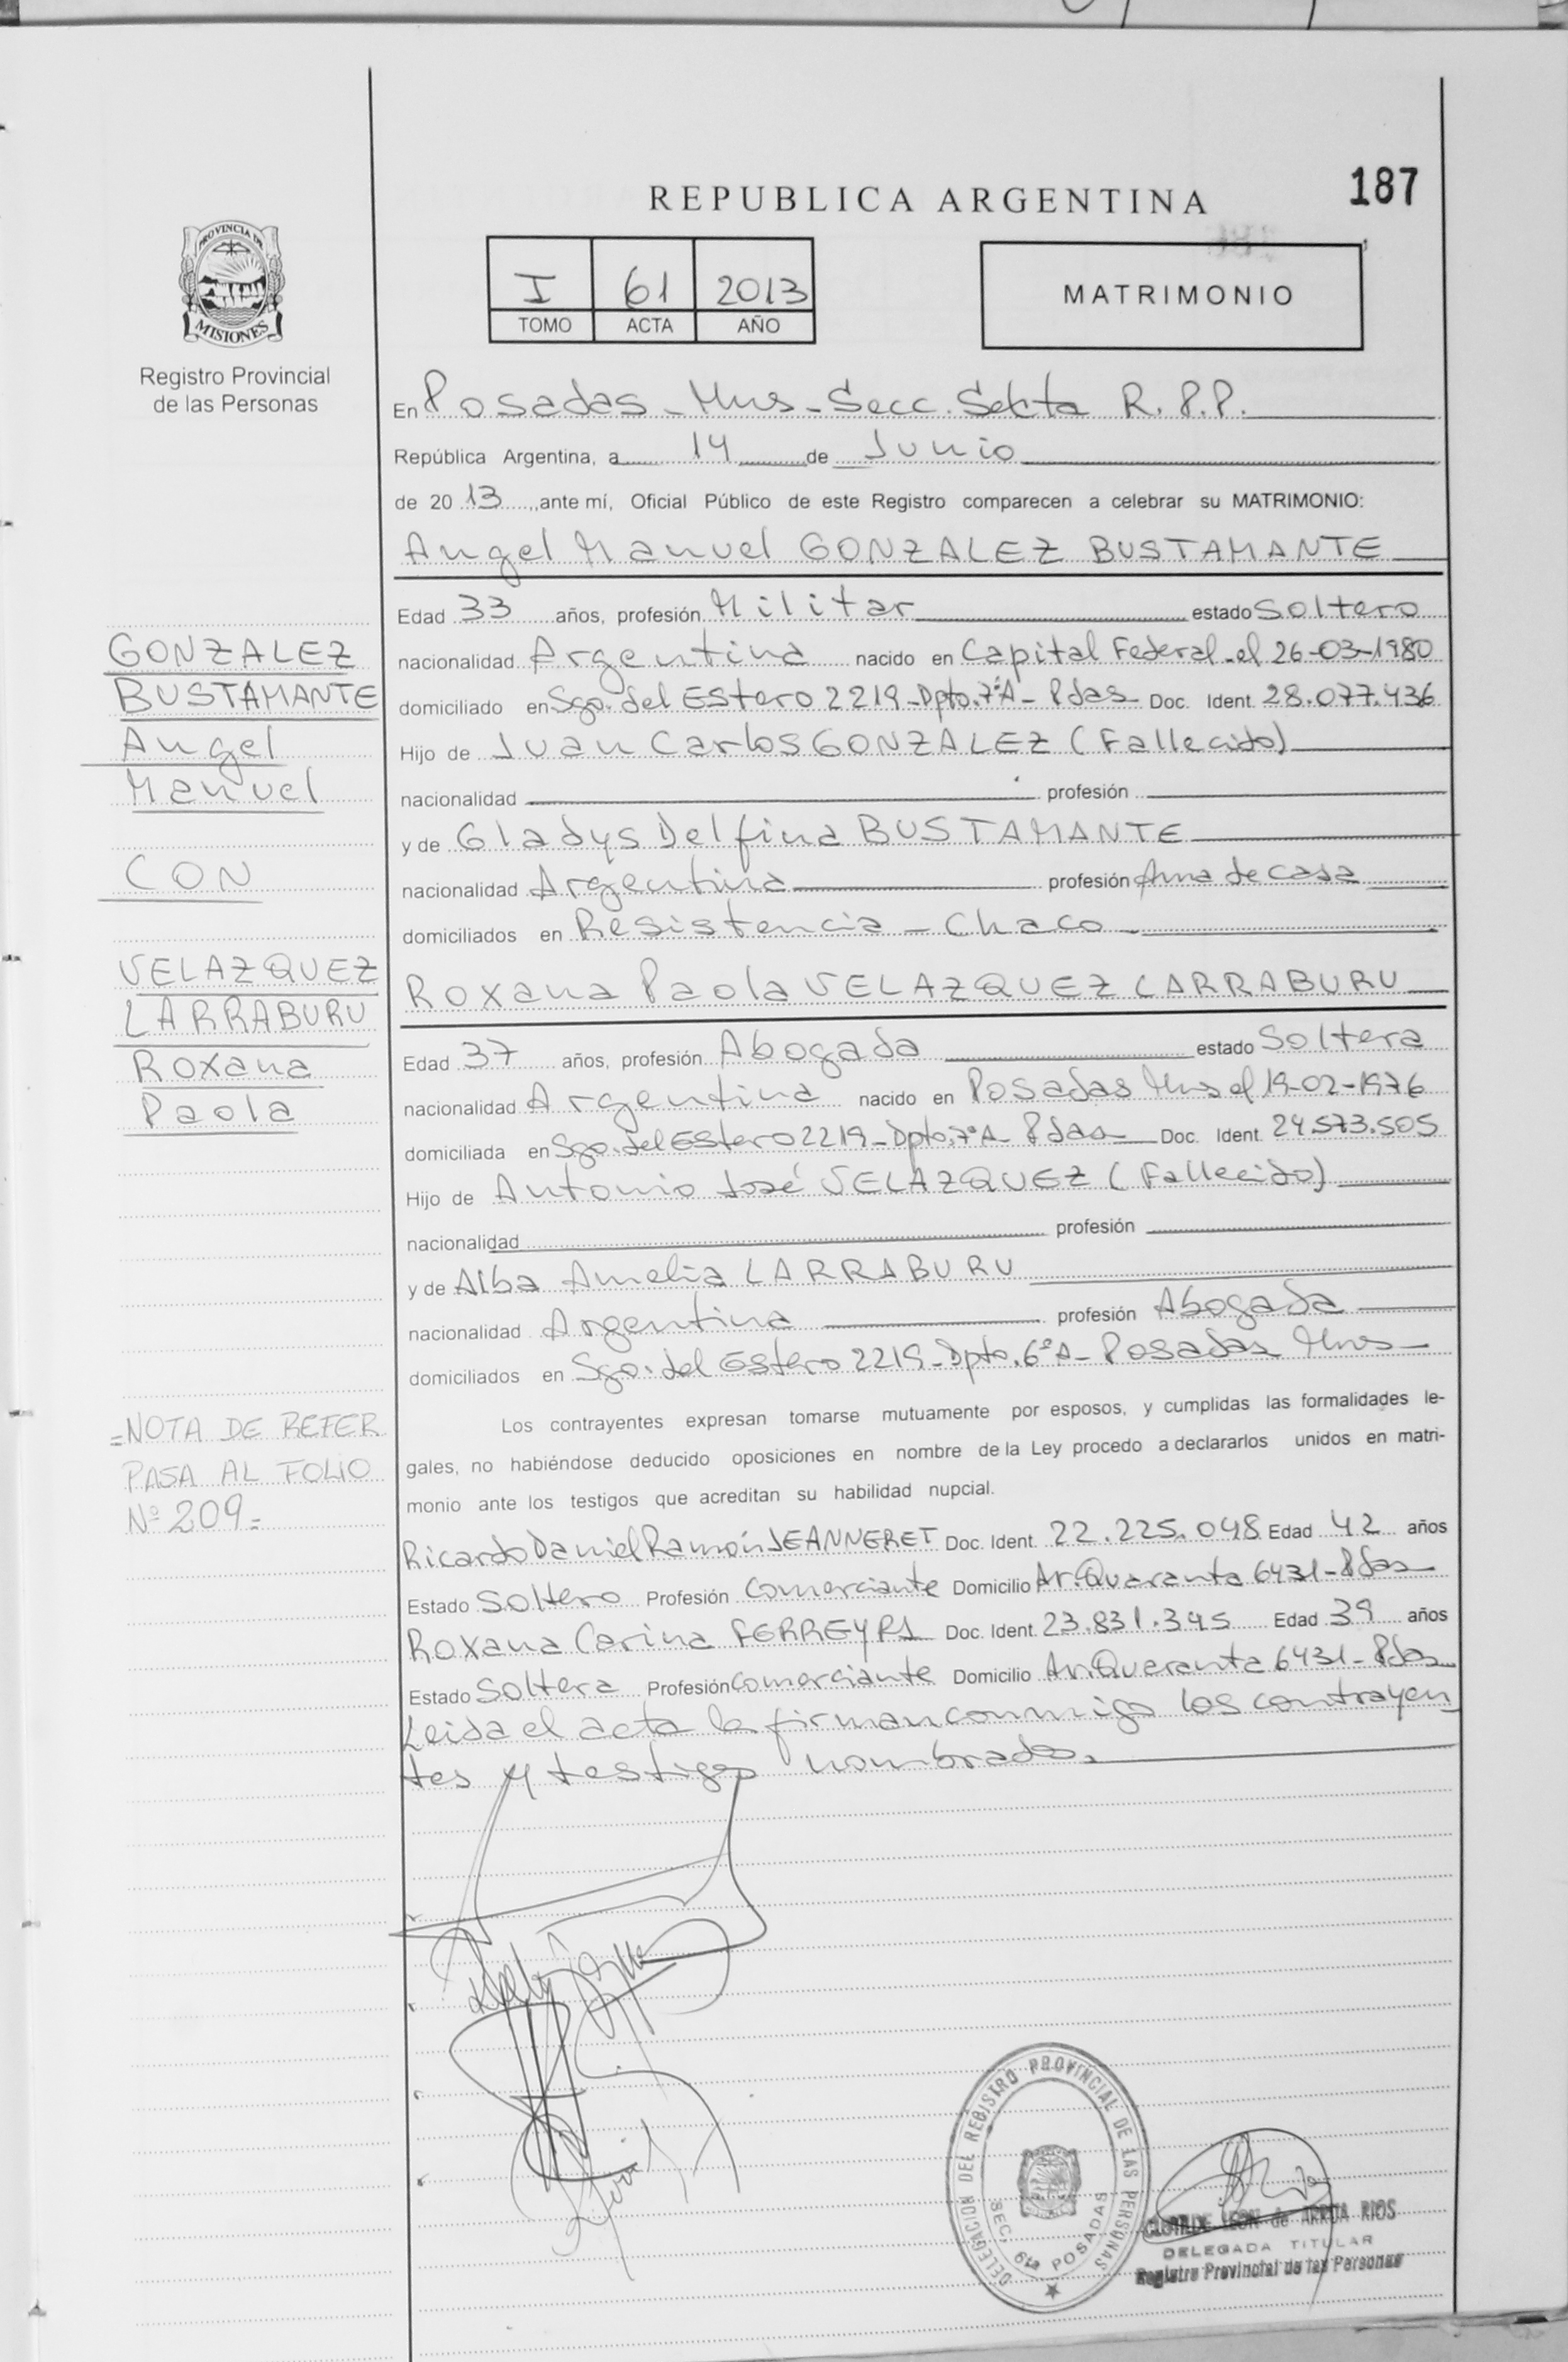 187
REPUBLICA ARGENTINA
PROVINCIA DE
MISIONES
Registro Provincial
de las Personas
I 61 2013
TOMO ACTA AÑO
MATRIMONIO
En Posadas - Mnes - Secc. Sexta R.P.P.
República Argentina, a 14 de Junio
de 20 13, ante mí, Oficial Público de este Registro comparecen a celebrar su MATRIMONIO:
Angel Manuel GONZALEZ BUSTAMANTE
Edad 33 años, profesión Militar estado Soltero
nacionalidad Argentina nacido en Capital Federal - el 26-03-1980
domiciliado en Sgo. del Estero 2219 - Dpto. 7ºA - Pdas Doc. Ident. 28.077.436
Hijo de Juan Carlos GONZALEZ (Fallecido)
nacionalidad profesión
y de Gladys Delfina BUSTAMANTE
nacionalidad Argentina profesión Ama de casa
domiciliados en Resistencia - Chaco -
Roxana Paola VELAZQUEZ LARRABURU
Edad 37 años, profesión Abogada estado Soltera
nacionalidad Argentina nacido en Posadas Mnes el 19-02-1976
domiciliada en Sgo. del Estero 2219 - Dpto. 7ºA - Pdas Doc. Ident. 24.573.505
Hijo de Antonio José VELAZQUEZ (Fallecido)
nacionalidad profesión
y de Alba Amelia LARRABURU
nacionalidad Argentina profesión Abogada
domiciliados en Sgo. del Estero 2219 - Dpto. 6ºA - Posadas Mnes
Los contrayentes expresan tomarse mutuamente por esposos, y cumplidas las formalidades le-
gales, no habiéndose deducido oposiciones en nombre de la Ley procedo a declararlos unidos en matri-
monio ante los testigos que acreditan su habilidad nupcial.
Ricardo Daniel Ramón JEANNERET Doc. Ident. 22.225.048 Edad 42 años
Estado Soltero Profesión Comerciante Domicilio Av. Quaranta 6431 - Pdas
Roxana Carina FERREYRA Doc. Ident. 23.831.345 Edad 39 años
Estado Soltera Profesión Comerciante Domicilio Av. Quaranta 6431 - Pdas
Leida el acta la firman conmigo los contrayen
tes y testigos nombrados.
GONZALEZ
BUSTAMANTE
Angel
Manuel
CON
VELAZQUEZ
LARRABURU
Roxana
Paola
=NOTA DE REFER
PASA AL FOLIO
Nº 209=
DELEGACION DEL REGISTRO PROVINCIAL DE LAS PERSONAS
SEC. 6ta POSADAS
LEON de ARRUA RIOS
DELEGADA TITULAR
Registro Provincial de las Personas